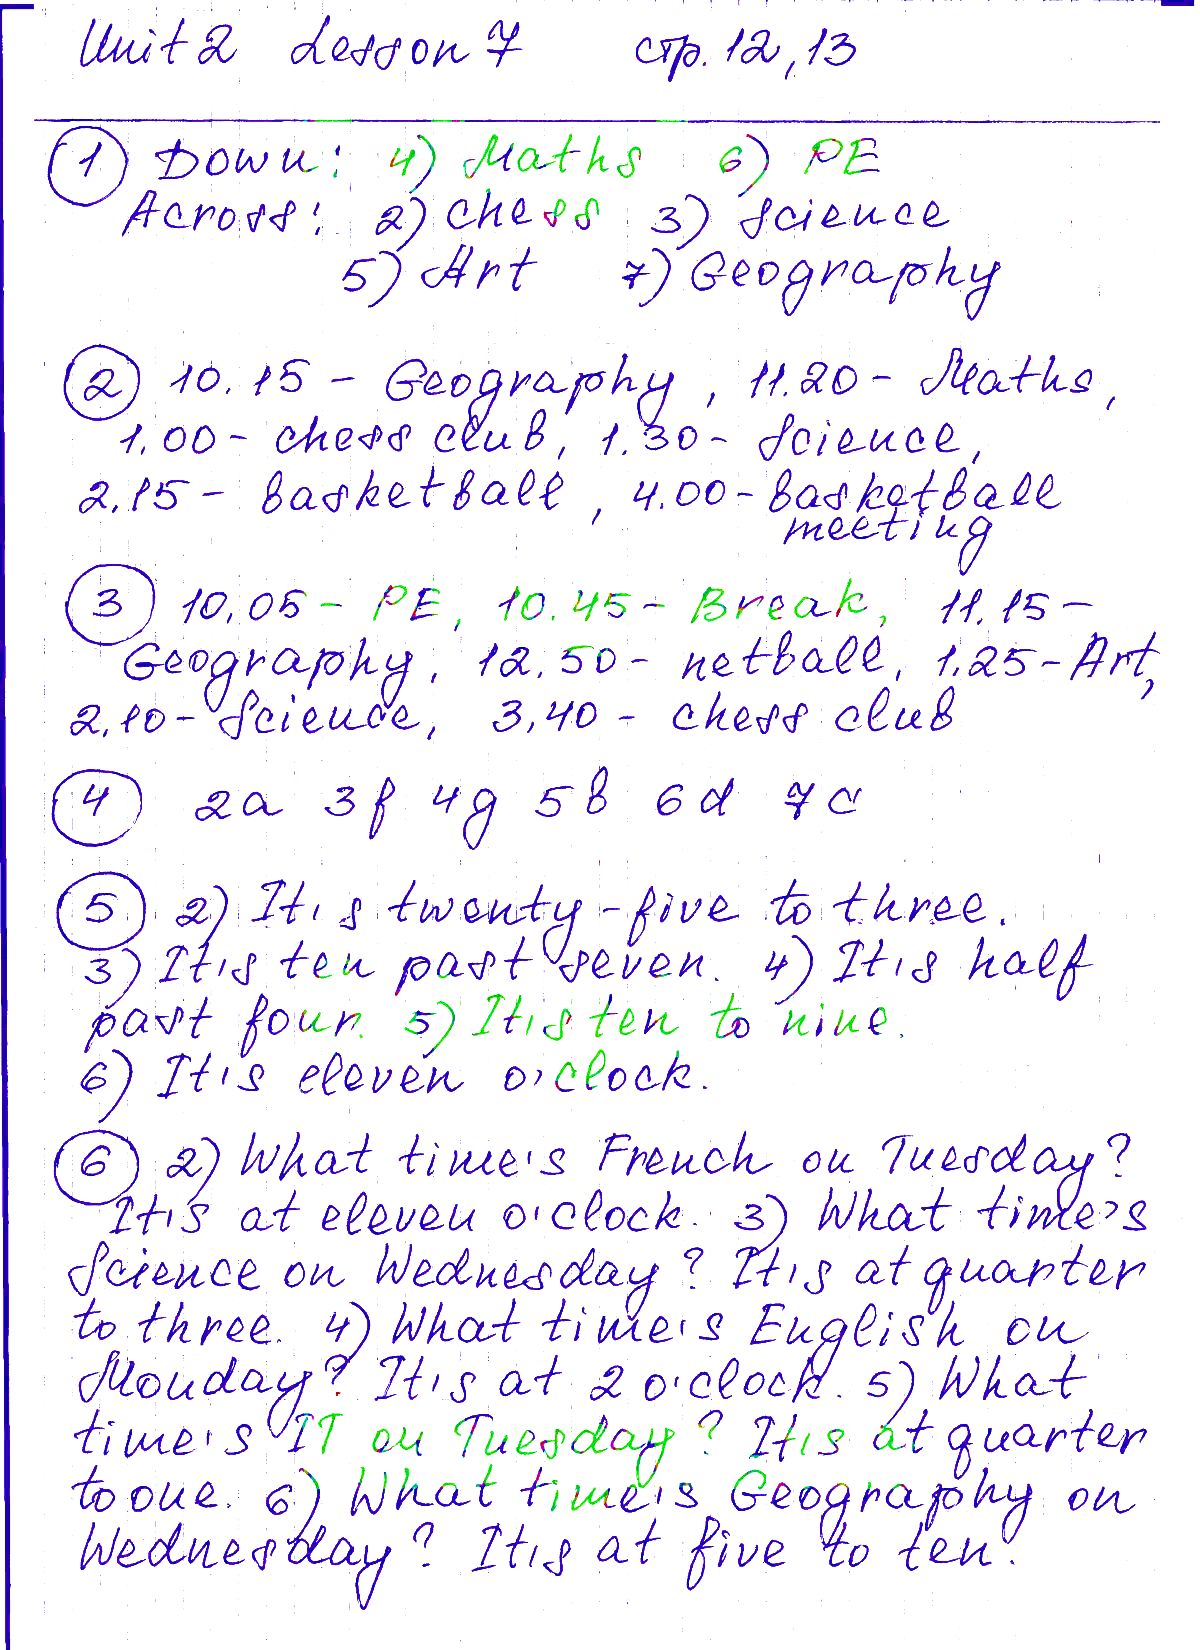 Unit 2 Lesson 7 стр. 12, 13
1 Down: 4) Maths 6) PE
Across: 2) chess 3) Science
5) Art 7) Geography
2 10.15 - Geography, 11.20 - Maths,
1.00 - chess club, 1.30 - Science,
2.15 - basketball, 4.00 - basketball
meeting
3 10.05 - PE, 10.45 - Break, 11.15 -
Geography, 12.50 - netball, 1.25 - Art,
2.10 - Science, 3.40 - chess club
4 2a 3f 4g 5b 6d 7c
5 2) It's twenty-five to three.
3) It's ten past seven. 4) It's half
past four. 5) It's ten to nine.
6) It's eleven o'clock.
6 2) What time's French on Tuesday?
It's at eleven o'clock. 3) What time's
Science on Wednesday? It's at quarter
to three. 4) What time's English on
Monday? It's at 2 o'clock. 5) What
time's IT on Tuesday? It's at quarter
to one. 6) What time's Geography on
Wednesday? It's at five to ten.